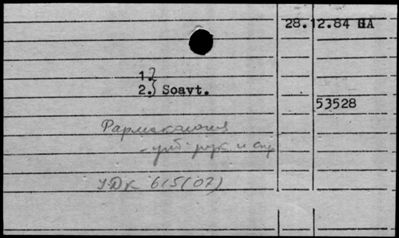 28.12.84 НА
1.}
2.} Soavt.
53528
Фармакология
- уч. рук и спр
УДК 615(07)